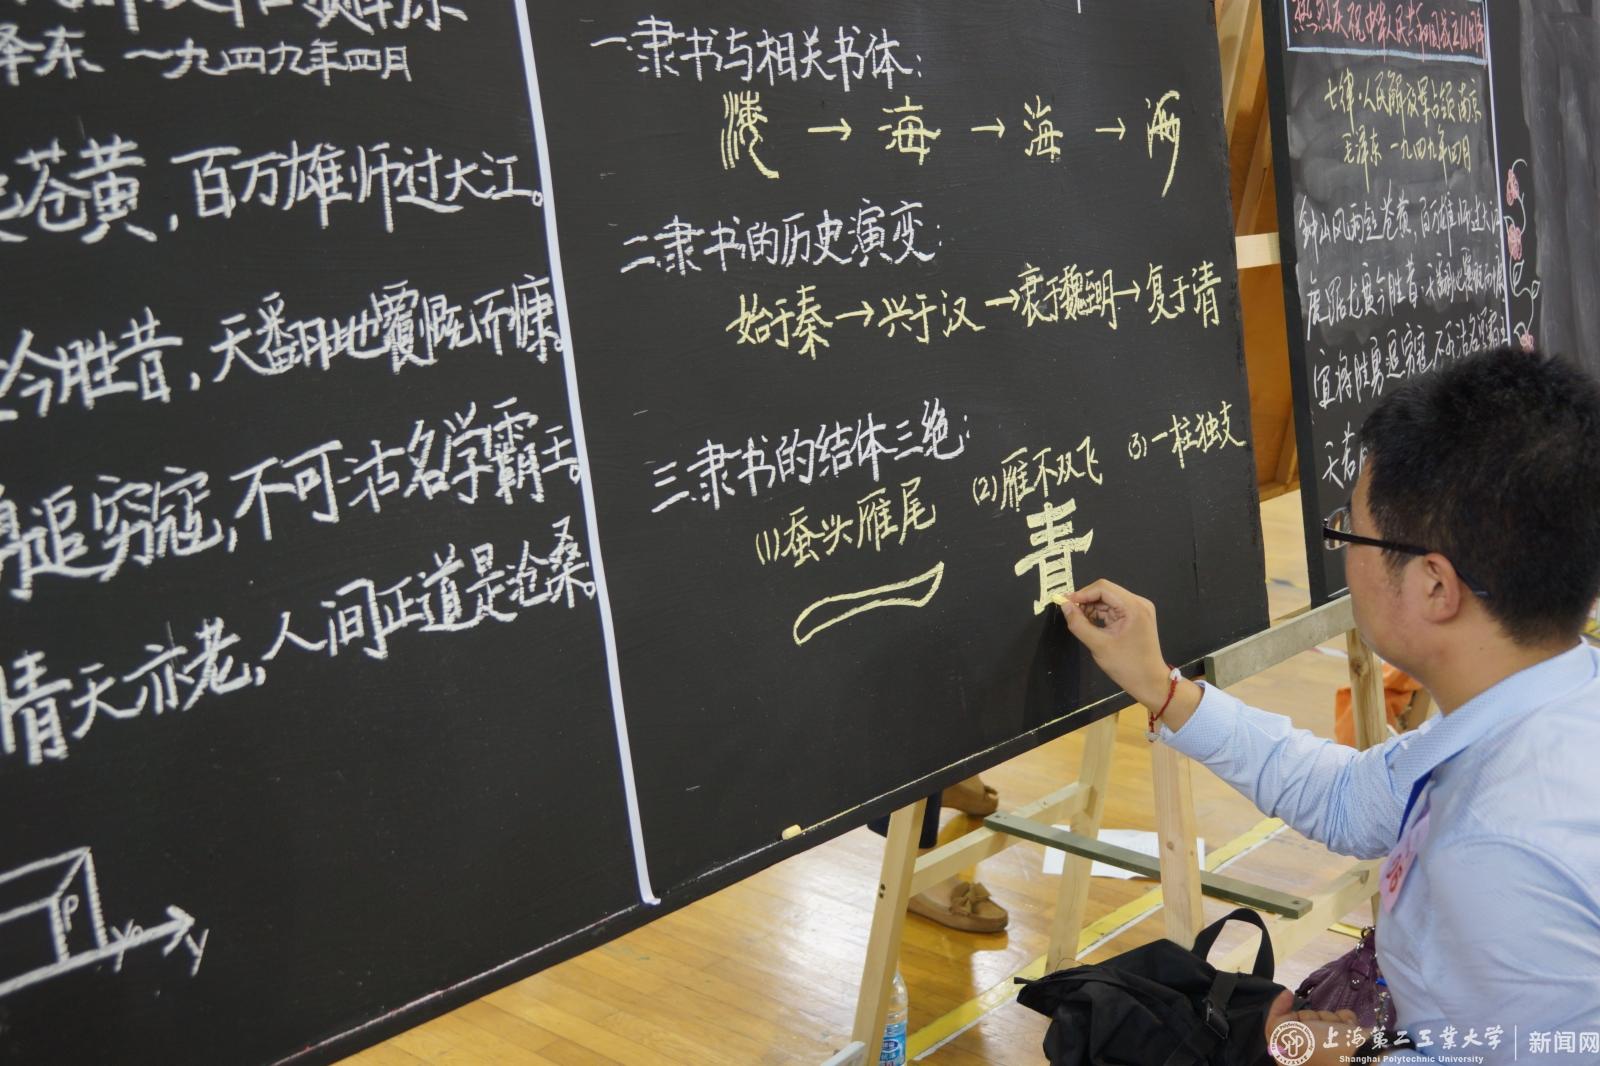 泽东 一九四九年四月
苍黄，百万雄师过大江。
今胜昔，天翻地覆慨而慷。
追穷寇，不可沽名学霸王。
情天亦老，人间正道是沧桑。
P
Y
一.隶书与相关书体：
海 → 海 → 海 → 海
二.隶书的历史演变：
始于秦→兴于汉→衰于魏至明→复于清
三.隶书的结体三绝：
(1)蚕头雁尾
(2)雁不双飞
(3)一柱独支
青
热烈庆祝中华人民共和国成立
七律·人民解放军占领南京
毛泽东 一九四九年四月
钟山风雨起苍黄，百万雄师过大江
虎踞龙盘今胜昔，天翻地覆慨而慷
宜将胜勇追穷寇，不可沽名学霸王
天若
上海第二工业大学
Shanghai Polytechnic University
新闻网